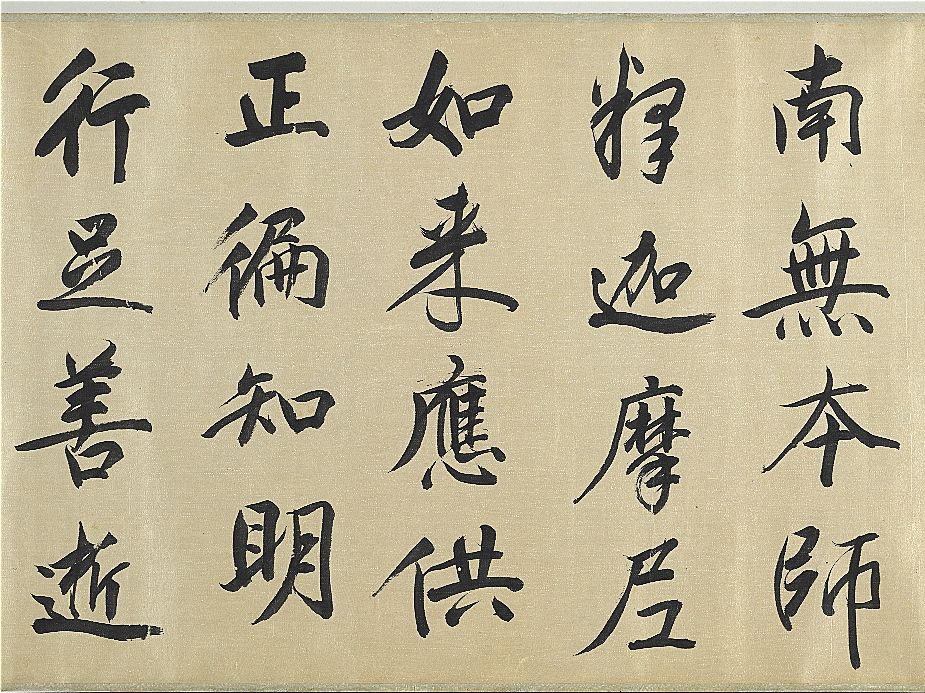 南無本師
釋迦摩尼
如来應供
正徧知明
行足善逝